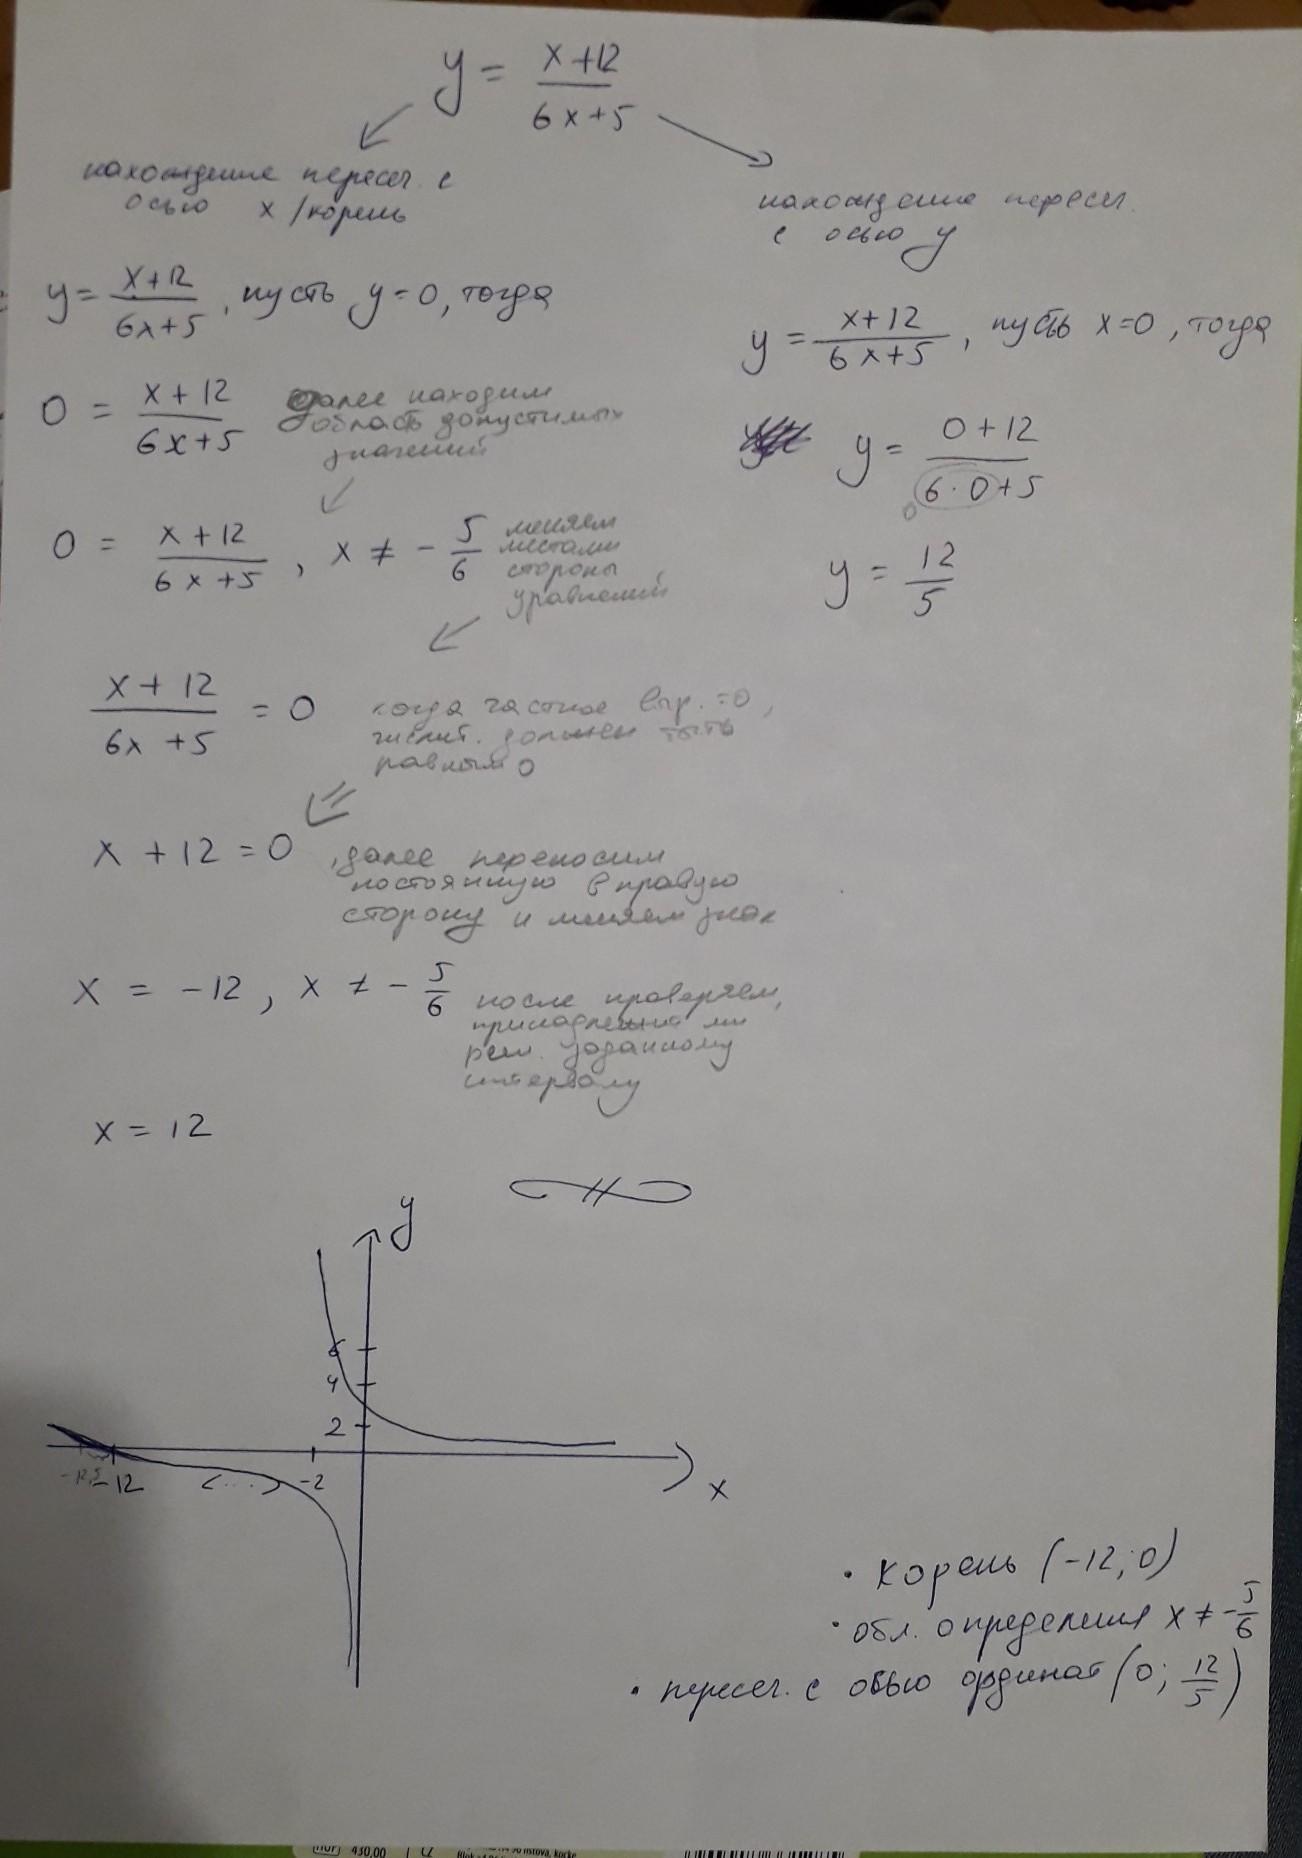 y = x+12 / 6x+5
нахождение пересеч. с
осью x /корень
y = x+12 / 6x+5 , пусть y=0, тогда
0 = x+12 / 6x+5
далее находим
область допустимых
значений
0 = x+12 / 6x+5 , x ≠ - 5/6
меняем
местами
стороны
уравнений
x+12 / 6x+5 = 0
когда частное =0,
числит. должен
равным 0
x+12=0
, далее переносим
постоянную в правую
сторону и меняем знак
x = -12, x ≠ - 5/6
после проверяем,
ли
реш. заданному
интервалу
x = 12
нахождение пересеч.
с осью y
y = x+12 / 6x+5 , пусть x=0, тогда
y = 0+12 / 6·0+5
0
y = 12/5
y
6
4
2
-12 (...) -2
x
• Корень (-12; 0)
• обл. определения x ≠ - 5/6
• пересеч. с осью ординат (0; 12/5)
HUF 430,00
CZ